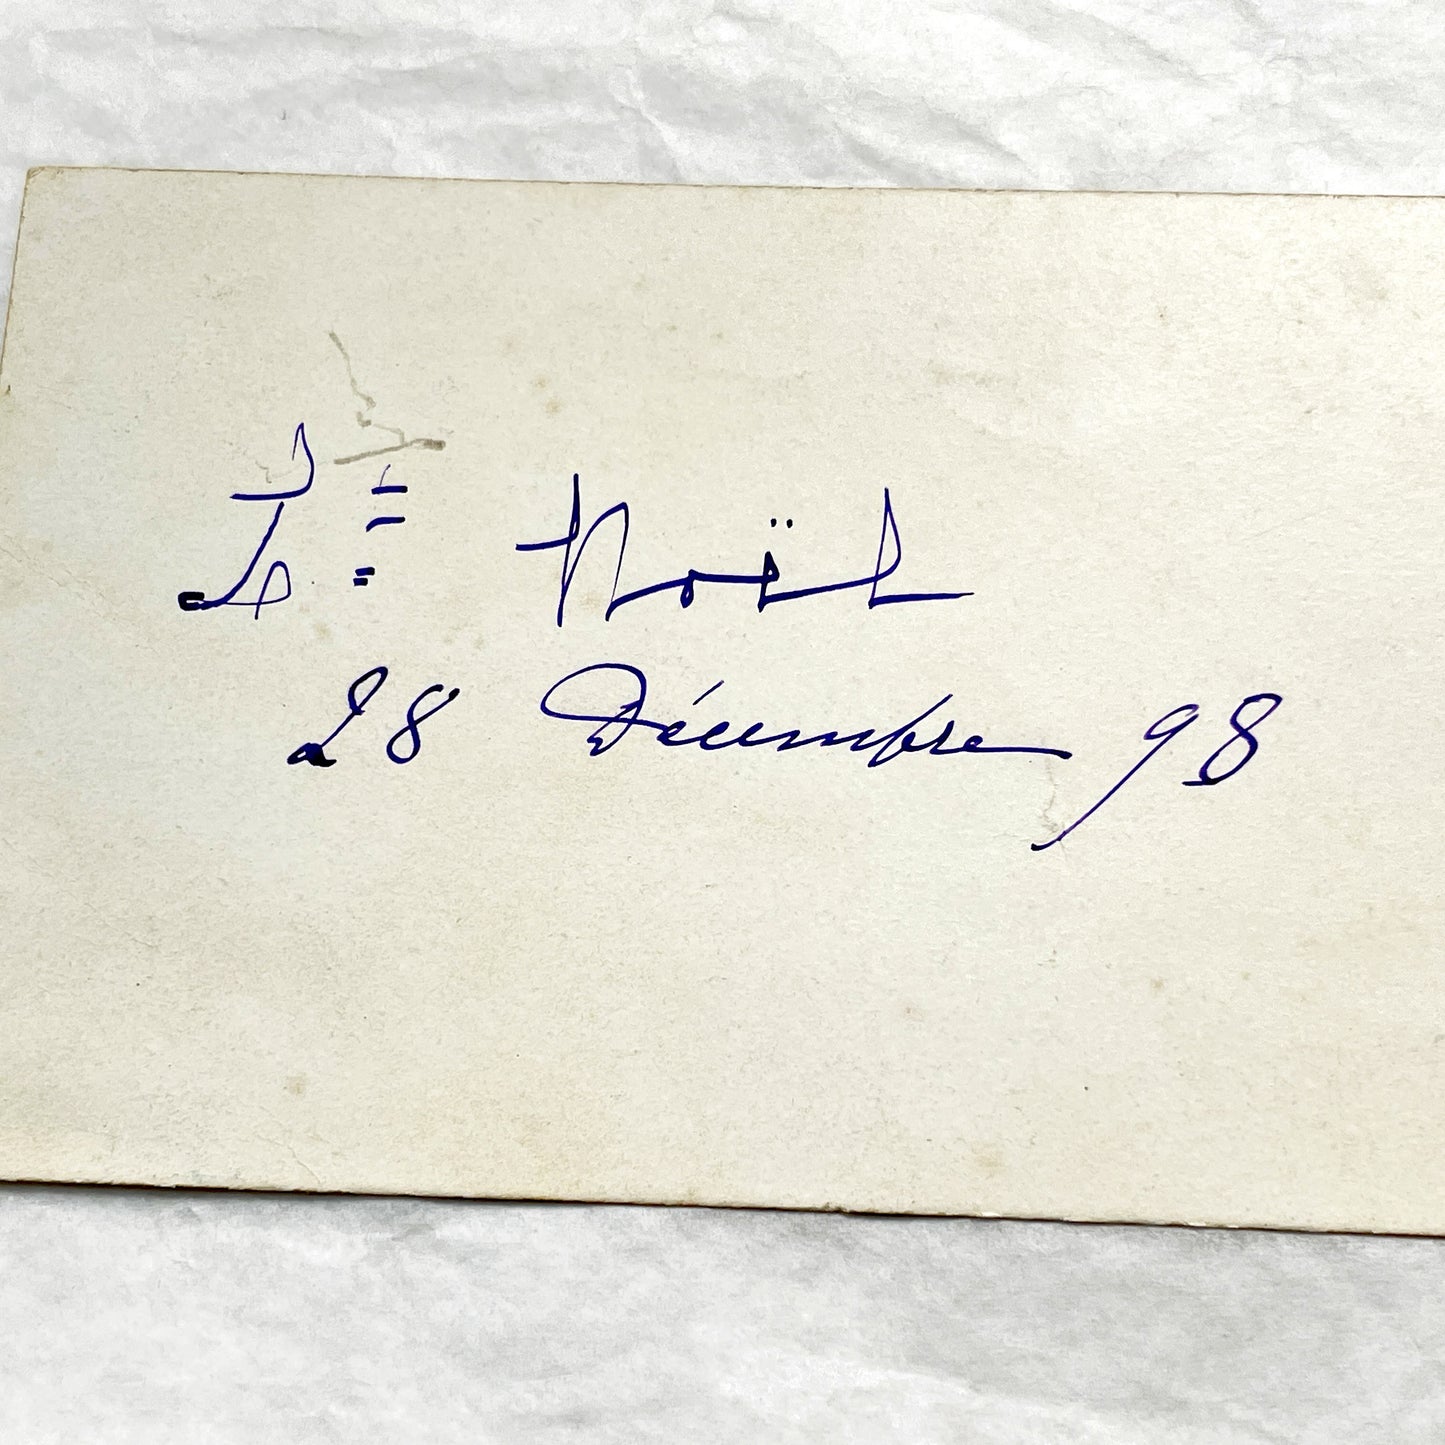 Noël
28 Décembre 98